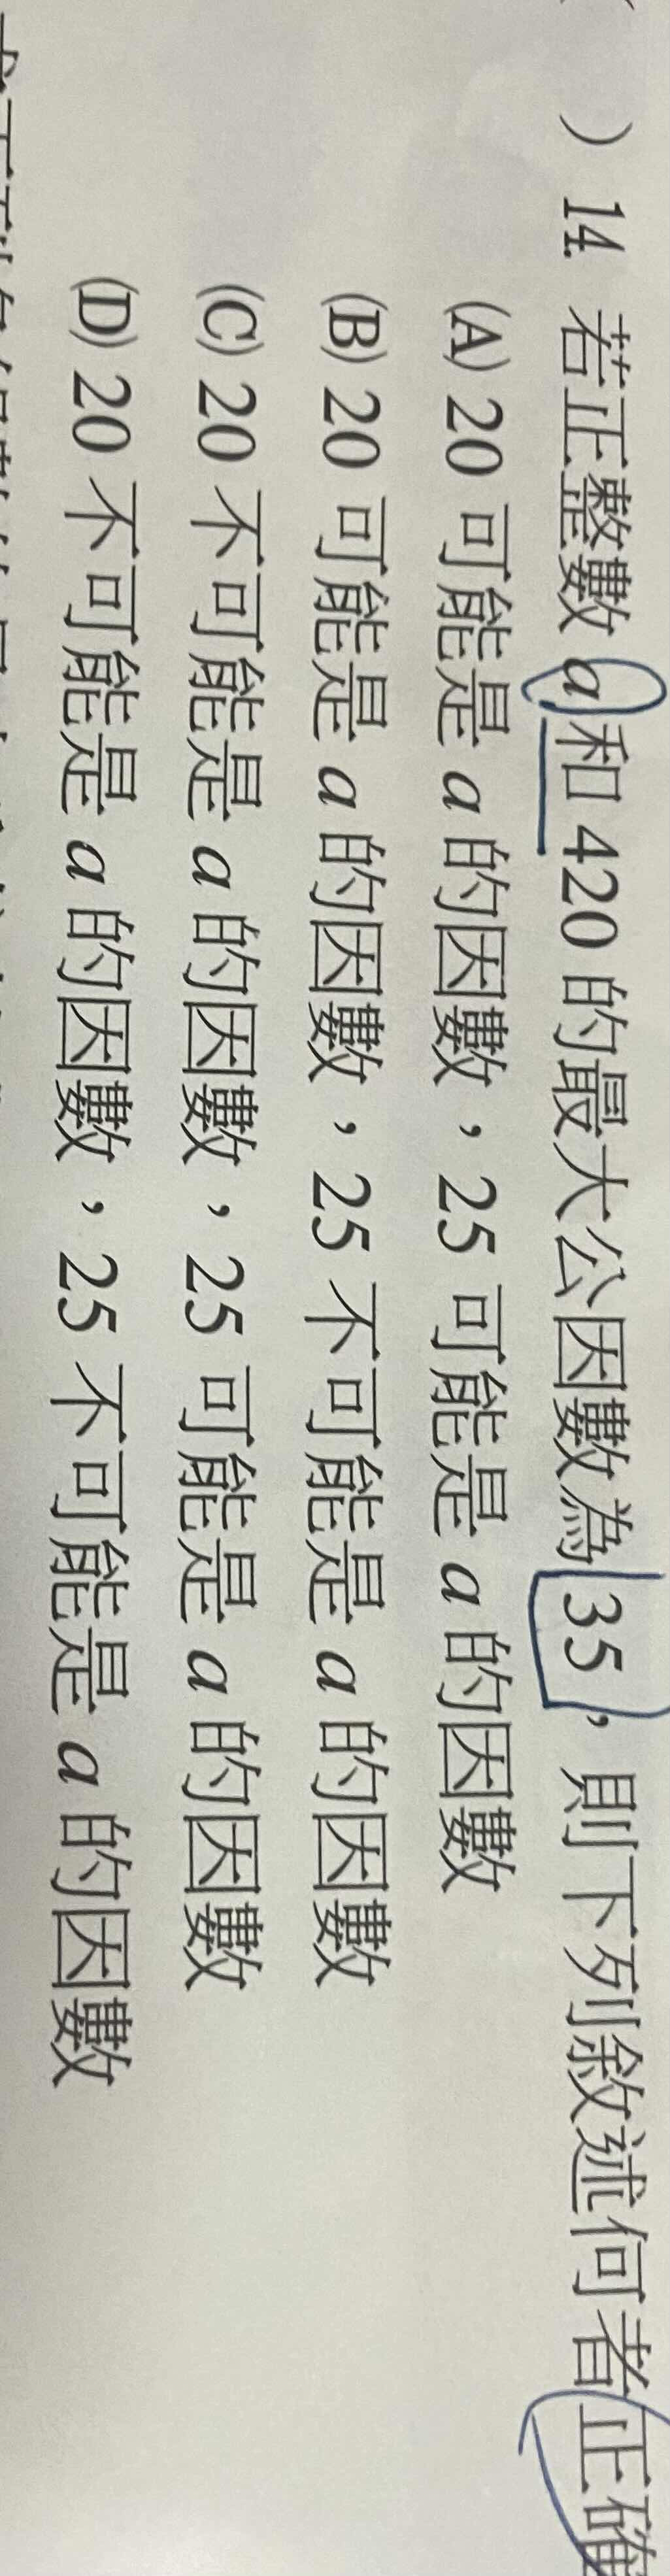 ) 14. 若正整數 a 和 420 的最大公因數為 35,則下列敘述何者正確
(A) 20 可能是 a 的因數,25 可能是 a 的因數
(B) 20 可能是 a 的因數,25 不可能是 a 的因數
(C) 20 不可能是 a 的因數,25 可能是 a 的因數
(D) 20 不可能是 a 的因數,25 不可能是 a 的因數